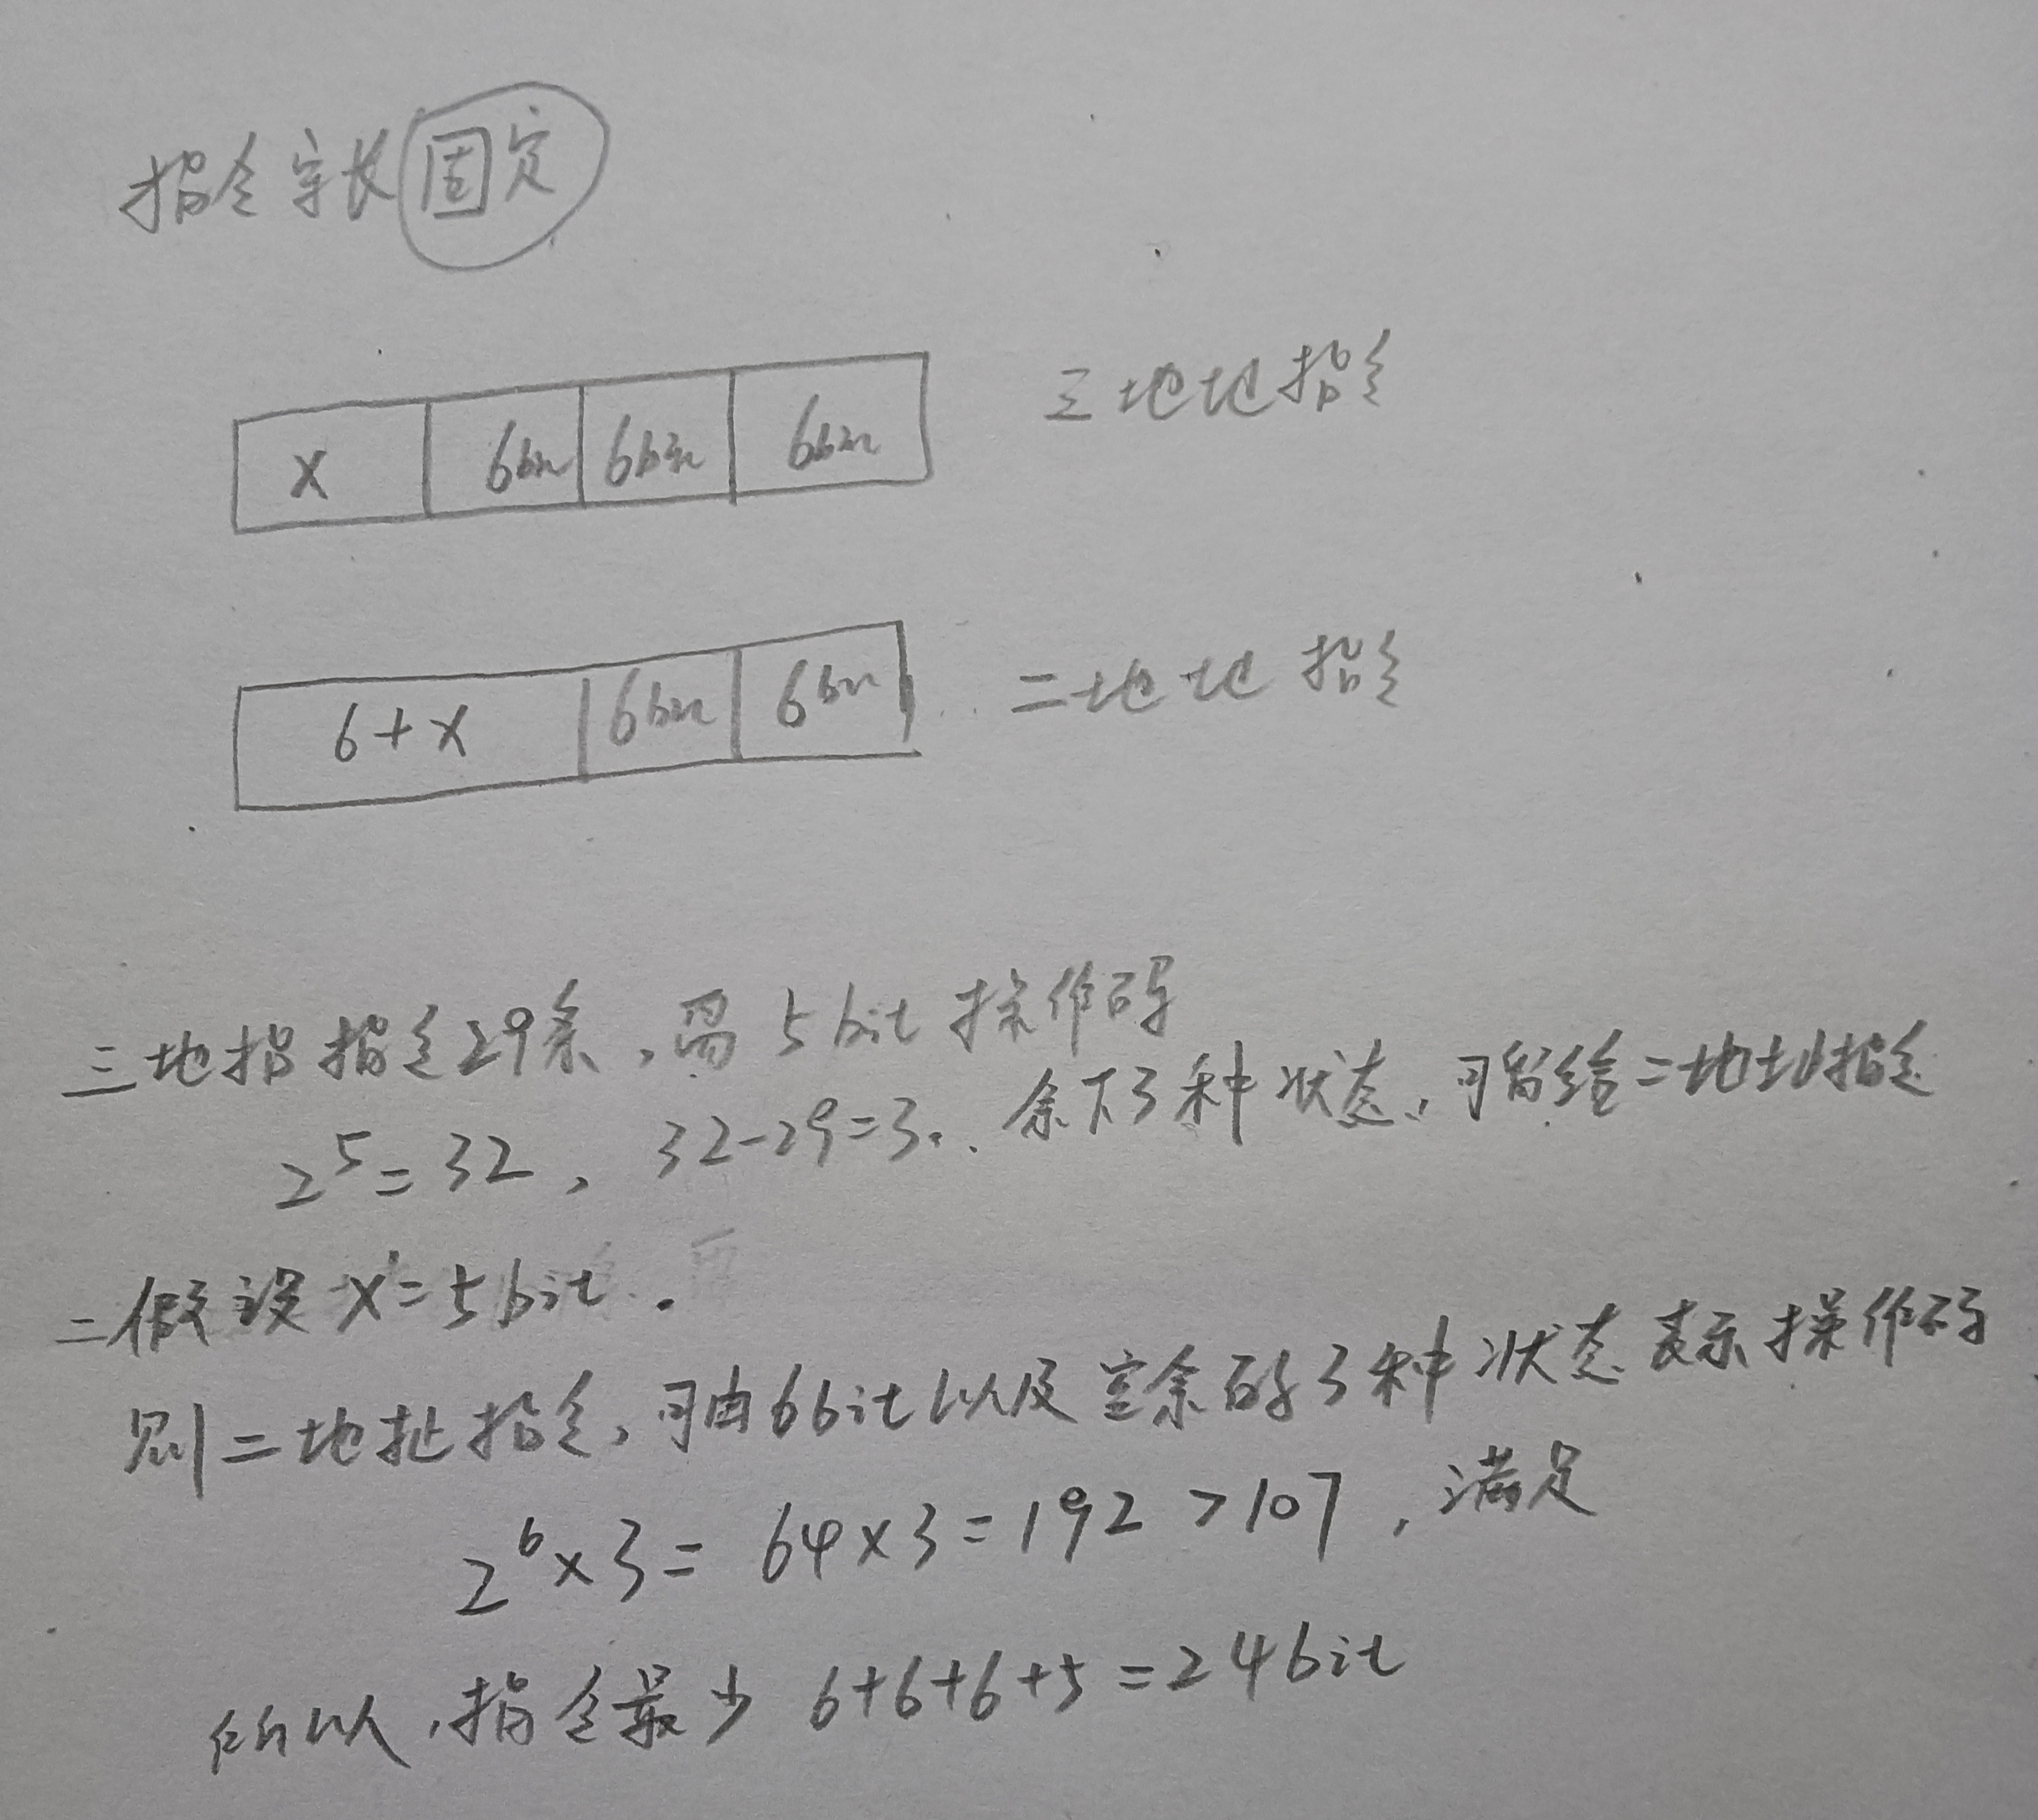 指令字长固定
X 6bit 6bit 6bit 三地址指令
6+X 6bit 6bit 二地址指令
三地指指令29条,需5bit操作码
2^5=32, 32-29=3. 余下3种状态,可留给二地址指令
=假设X=5bit.
则二地址指令,可由6bit以及空余的3种状态表示操作码
2^6×3=64×3=192>107,满足
所以,指令最少6+6+6+5=24bit